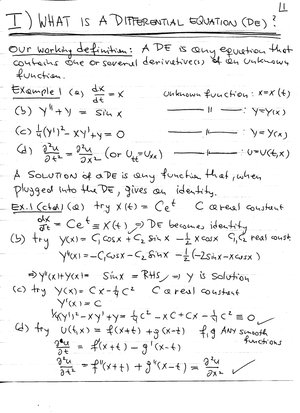 L1
I) WHAT IS A DIFFERENTIAL EQUATION (DE)?
Our working definition: A DE is any equation that
contains one or several derivative(s) of an unknown
function.
Example 1 (a) dx/dt = x unknown function: x=x(t)
(b) y''+y = sin x —"— : y=y(x)
(c) ¼(y')²-xy'+y=0 —"— : y=y(x)
(d) ∂²u/∂t² = ∂²u/∂x² (or Utt=Uxx) —"— : u=u(t,x)
A SOLUTION of a DE is any function that, when
plugged into the DE, gives an identity.
Ex.1 (ctd) (a) try x(t) = Ce^t C a real constant
dx/dt = Ce^t ≡ x(t) ✓ ⇒ DE becomes identity
(b) try y(x)=C₁cosx+C₂ sinx -½xcosx C₁,C₂ real const.
y''(x)=-C₁cosx-C₂ sinx -½(-2sinx-xcosx)
⇒ y''(x)+y(x)= sinx = RHS ⇒ y is solution
(c) try y(x) = Cx-¼C² C a real constant
y'(x) = C
¼(y')²-xy'+y=¼C²-xC+Cx-¼C² ≡ 0 ✓
(d) try u(t,x) = f(x+t)+g(x-t) f,g ANY smooth
functions
∂u/∂t = f'(x+t) - g'(x-t)
∂²u/∂t² = f''(x+t) + g''(x-t) = ∂²u/∂x² ✓